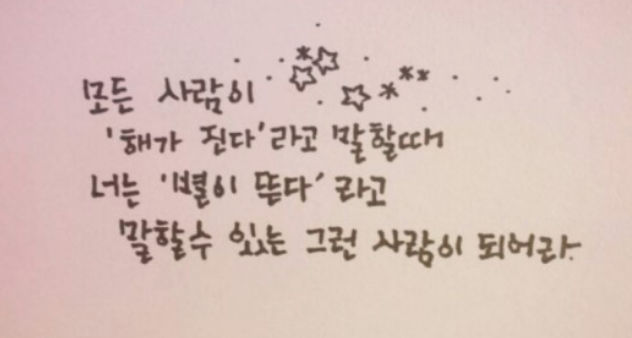 모든 사람이
'해가 진다'라고 말할때
너는 '별이 뜬다' 라고
말할수 있는 그런 사람이 되어라.